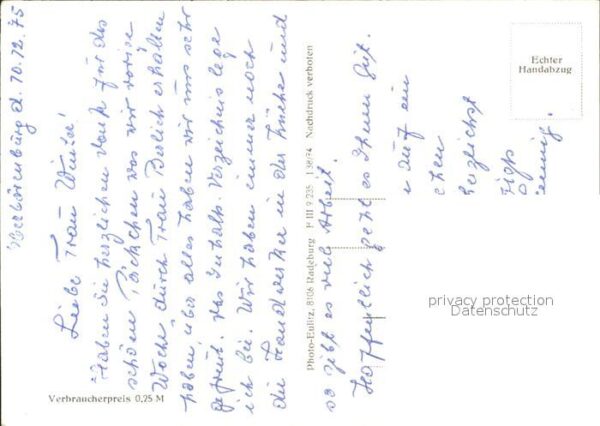 d. 10.12.75
Liebe Frau Winter!
Haben Sie herzlichen Dank für das
schöne Päckchen was wir vorige
Woche durch Frau Berlich erhalten
haben, über alles haben wir uns sehr
gefreut. Das Inhalts-Verzeichnis lege
ich bei. Wir haben immer noch
die Handwerker in der Küche und
so gibt es viel Arbeit.
Hoffentlich geht es Ihnen gut.
auf ein
chen
herzlichst
Verbraucherpreis 0,25 M
Photo-Eulitz, 8106 Radeburg F III 9 235 Nachdruck verboten
Echter
Handabzug
privacy protection
Datenschutz